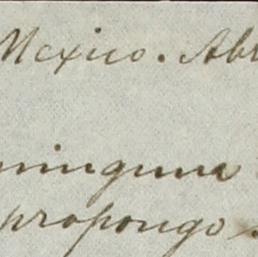 Mexico. Abr
ninguna
propongo